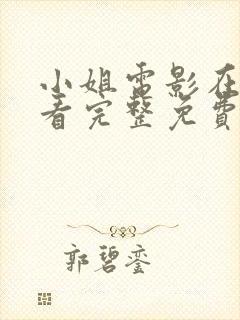 小姐電影在
看完整免費
郭碧銮